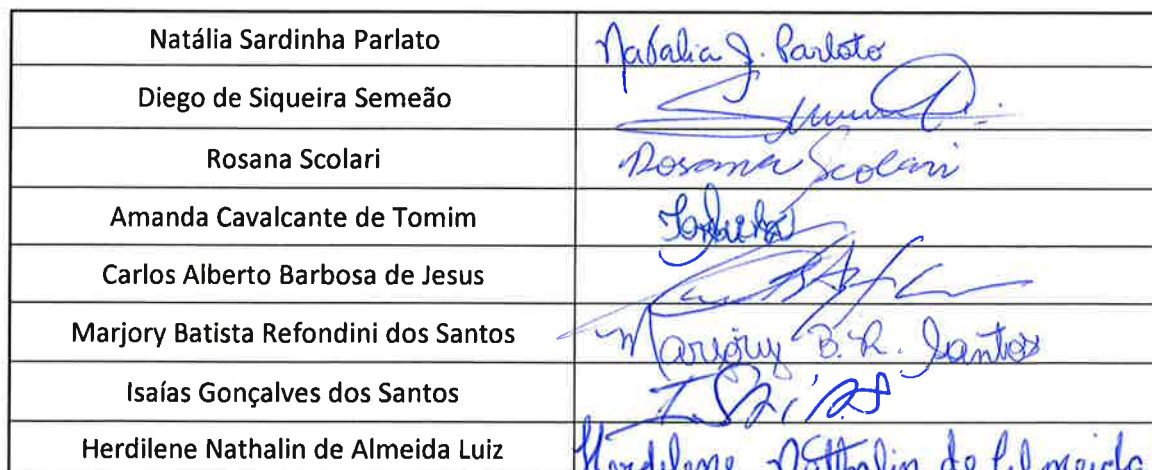 Natália Sardinha Parlato Natalia S. Parlato
Diego de Siqueira Semeão
Rosana Scolari Rosana Scolari
Amanda Cavalcante de Tomim
Carlos Alberto Barbosa de Jesus
Marjory Batista Refondini dos Santos Marjory B. R. Santos
Isaías Gonçalves dos Santos
Herdilene Nathalin de Almeida Luiz Herdilene Nathalin de Almeida